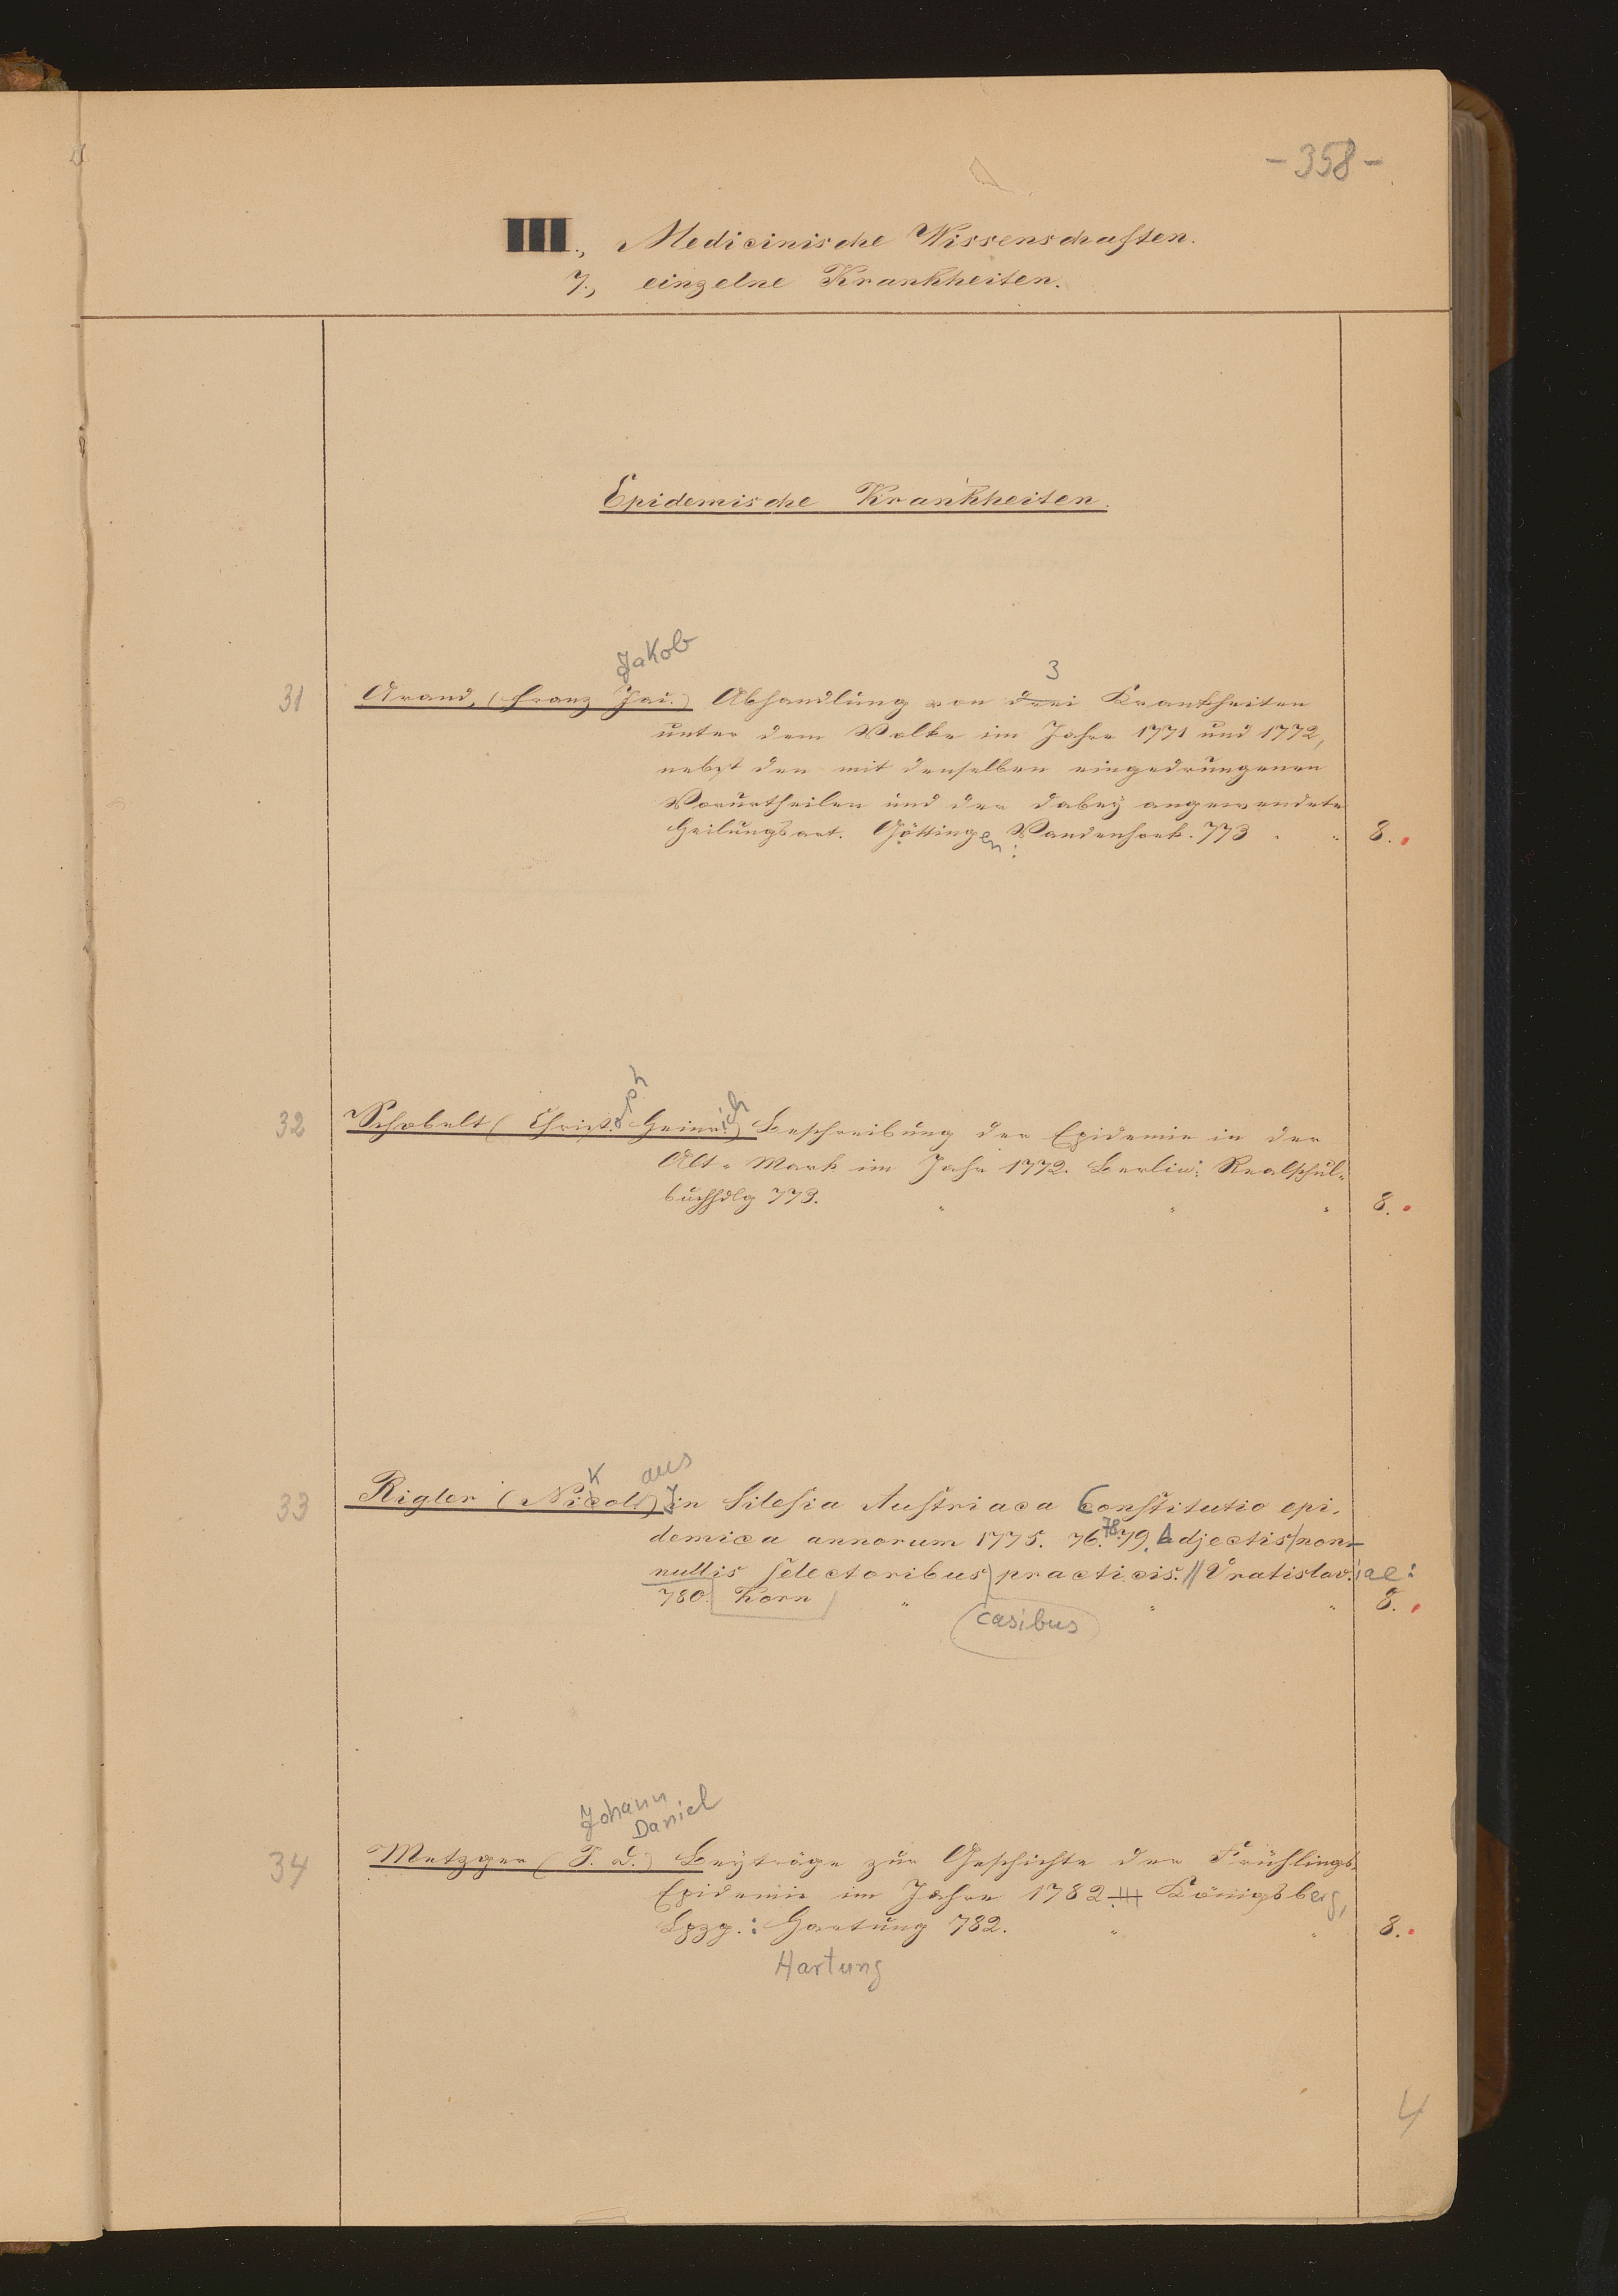 -358-
III., Medicinische Wissenschaften.
7., einzelne Krankheiten.
Epidemische Krankheiten.
Jakob
3
31 Arand, (Franz Jai.) Abhandlung von drei Krankheiten
unter dem Volke im Jahre 1771 und 1772,
nebst den mit denselben eingedrungenen
Vorurtheilen und der dabey angewendete
Heilungsart. Göttingen: Vandenhoek. 773 " " 8.
32 Schobelt (Christoph Heinrich) Beschreibung der Epidemie in der
Alt-Mark im Jahr 1772. Berlin: Realschul-
buchhdlg 773. " " " 8.
k aus
33 Rigler (Nicol.) In Silesia Austriaca Constitutio epi-
demica annorum 1775. 76. 78. 79. Adjectis non-
nullis selectoribus practicis. // Vratislav. iae:
780. Korn " " " 8.
casibus
Johann
Daniel
34 Metzger (J. D.) Beyträge zur Geschichte der Frühlings-
Epidemie im Jahre 1782. Königsberg,
Lpzg.: Hartung 782. " " 8.
Hartung
4